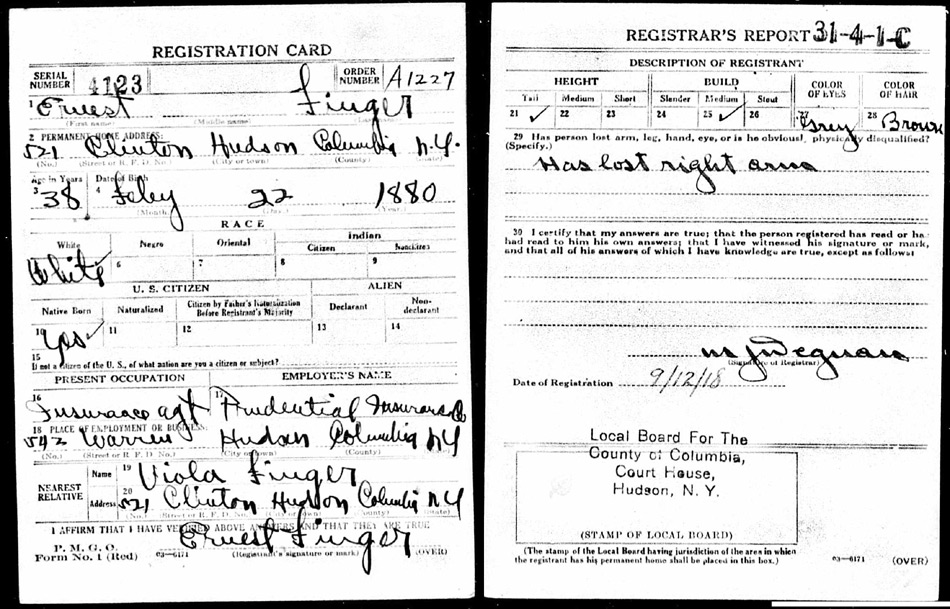 REGISTRATION CARD
SERIAL NUMBER 4123 ORDER NUMBER A1227
1 Ernest Finger
(First name) (Middle name)
2 PERMANENT HOME ADDRESS:
521 Clinton Hudson Columbia N.Y.
(No.) (Street or R. F. D. No.) (City or town) (County) (State)
Age in Years Date of Birth
3 38 4 Feby 22 1880
(Month) (Day) (Year)
RACE
White Negro Oriental Indian
Citizen Noncitizen
5 White 6 7 8 9
U. S. CITIZEN ALIEN
Native Born Naturalized Citizen by Father's Naturalization Before Registrant's Majority Declarant Non-declarant
10 yes 11 12 13 14
15
If not a citizen of the U. S., of what nation are you a citizen or subject?
PRESENT OCCUPATION EMPLOYER'S NAME
16 Insurance agt 17 Prudential Insurance Co
18 PLACE OF EMPLOYMENT OR BUSINESS:
542 Warren Hudson Columbia NY
(No.) (Street or R. F. D. No.) (City or town) (County) (State)
NEAREST RELATIVE
Name 19 Viola Finger
Address 20 521 Clinton Hudson Columbia N Y
(No.) (Street or R. F. D. No.) (City or town) (County) (State)
I AFFIRM THAT I HAVE VERIFIED ABOVE ANSWERS AND THAT THEY ARE TRUE
Ernest Finger
P. M. G. O.
Form No. 1 (Red) 03—6171 (Registrant's signature or mark) (OVER)
REGISTRAR'S REPORT 31-4-1-C
DESCRIPTION OF REGISTRANT
HEIGHT BUILD COLOR OF EYES COLOR OF HAIR
Tall Medium Short Slender Medium Stout
21 ✓ 22 23 24 25 ✓ 26 27 Grey 28 Brown
29 Has person lost arm, leg, hand, eye, or is he obviously physically disqualified?
(Specify.)
Has lost right arm
30 I certify that my answers are true; that the person registered has read or has
had read to him his own answers; that I have witnessed his signature or mark,
and that all of his answers of which I have knowledge are true, except as follows:
(Signature of Registrar)
Date of Registration 9/12/18
Local Board For The
County of Columbia,
Court House,
Hudson, N. Y.
(STAMP OF LOCAL BOARD)
(The stamp of the Local Board having jurisdiction of the area in which
the registrant has his permanent home shall be placed in this box.)
03—6171 (OVER)